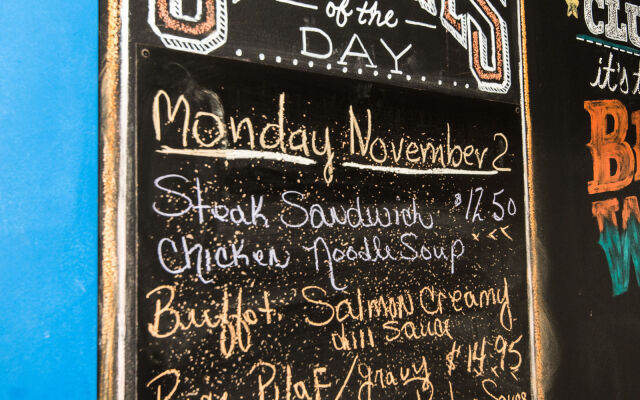 of the
DAY
Monday November 2
Steak Sandwich $12.50
Chicken Noodle Soup
Buffet. Salmon Creamy
dill Sauce
Rice Pilaf/gravy $14.95
CLU
it's